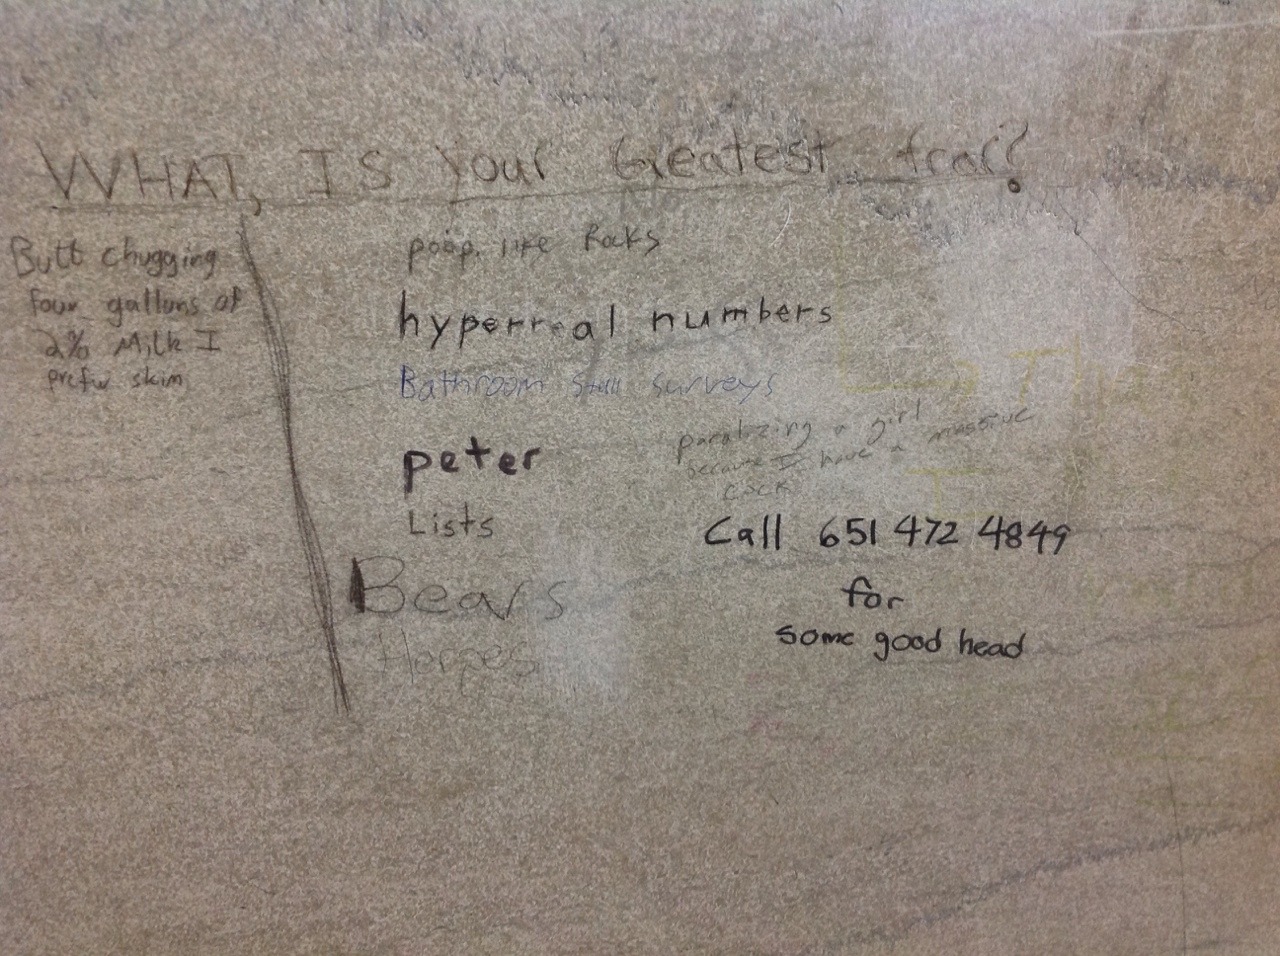 WHAT, IS Your Greatest fear?
Butt chugging
four gallons of
2% Milk I
prefur skim
poop. like Rocks
hyperreal numbers
Bathroom stall surveys
peter
paralizing a girl
because I have a massive
cock
Lists
Call 651 472 4849
for
some good head
Bears
Herpes